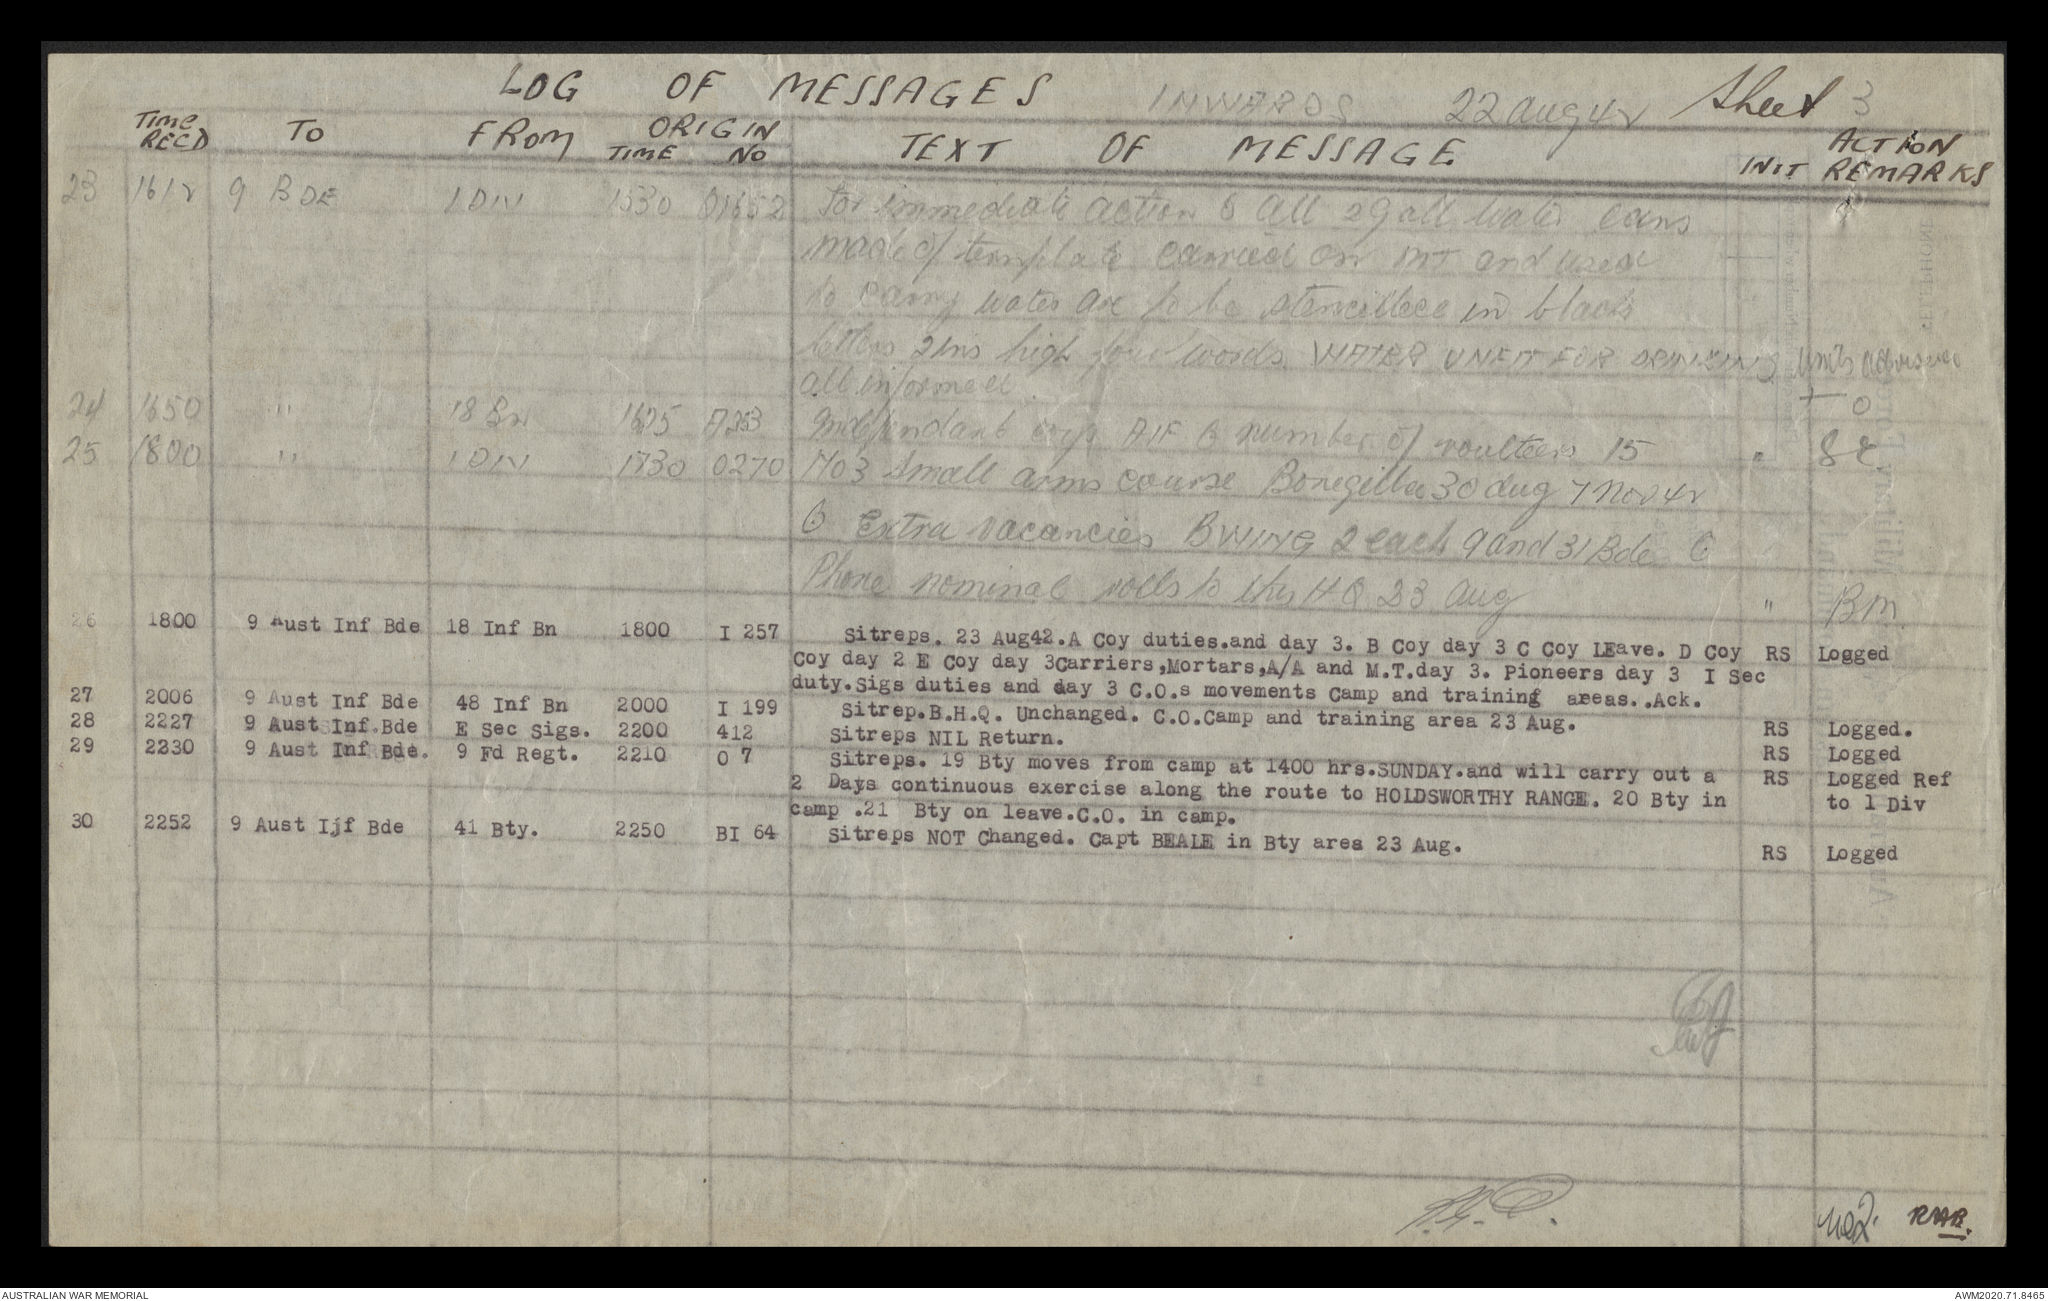 LOG OF MESSAGES INWARDS 22 Aug 42 Sheet 3
TIME RECD TO FROM ORIGIN TIME NO TEXT OF MESSAGE INIT ACTION REMARKS
23 1612 9 BDE 1 DIV 1530 O1652 For immediate action (.) All 2 Gall Water cans
made of template carried on MT and used
to carry water are to be stencilled in black
letters 2 ins high words WATER UNFIT FOR DRINKING Units advised
all informed O
24 1650 " 18 Bn 1625 A253 Independant coys AIF (.) number of 15 " SC
25 1800 " 1 DIV 1730 0270 No 3 Small arms course Bonegilla 30 Aug 7 Nov 42
(.) Extra vacancies B WING 2 each 9 and 31 Bde (.)
Phone nominal rolls to this HQ 23 Aug " BM.
26 1800 9 Aust Inf Bde 18 Inf Bn 1800 I 257 Sitreps. 23 Aug42.A Coy duties.and day 3. B Coy day 3 C Coy LEave. D Coy RS Logged
Coy day 2 E Coy day 3Carriers,Mortars,A/A and M.T.day 3. Pioneers day 3 I Sec
duty.Sigs duties and day 3 C.O.s movements Camp and training areas..Ack.
27 2006 9 Aust Inf Bde 48 Inf Bn 2000 I 199 Sitrep.B.H.Q. Unchanged. C.O.Camp and training area 23 Aug. RS Logged.
28 2227 9 Aust Inf.Bde E Sec Sigs. 2200 412 Sitreps NIL Return. RS Logged
29 2230 9 Aust Inf Bde. 9 Fd Regt. 2210 O 7 Sitreps. 19 Bty moves from camp at 1400 hrs.SUNDAY.and will carry out a RS Logged Ref
2 Days continuous exercise along the route to HOLDSWORTHY RANGE. 20 Bty in to 1 Div
camp .21 Bty on leave.C.O. in camp.
30 2252 9 Aust Ijf Bde 41 Bty. 2250 BI 64 Sitreps NOT Changed. Capt BEALE in Bty area 23 Aug. RS Logged
RAB.
AUSTRALIAN WAR MEMORIAL AWM2020.71.8465